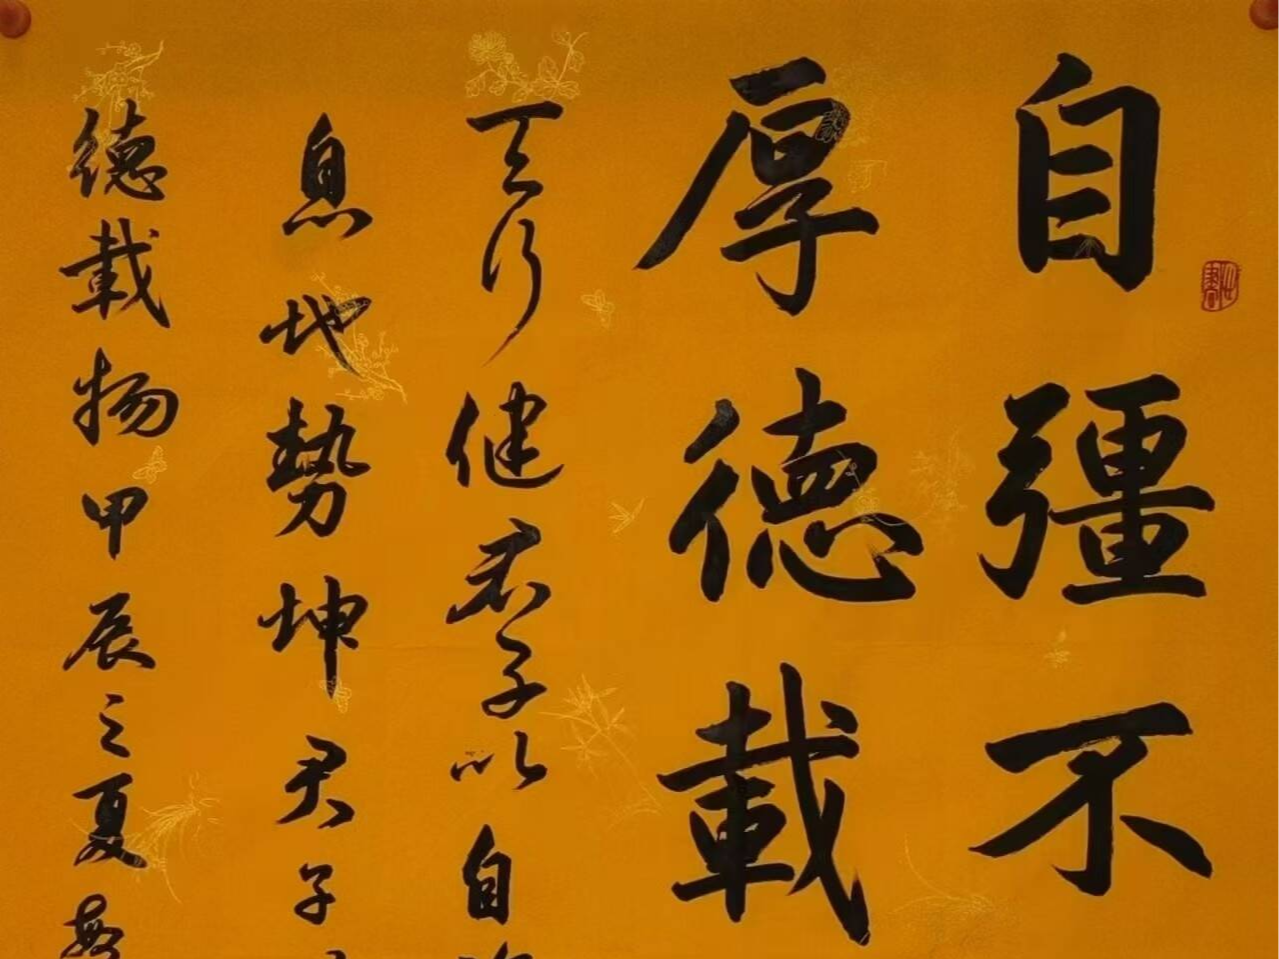 自疆不
厚德載
天行健君子以自
息地勢坤君子
德載物甲辰之夏